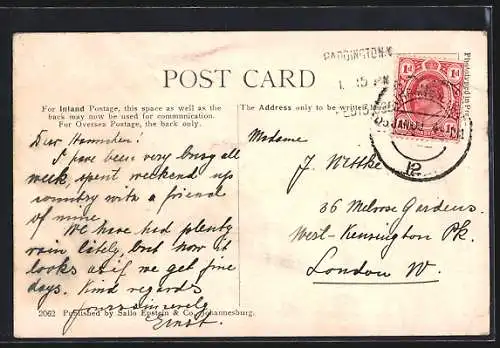 PADDINGTON.W
15 PM
POST CARD
1d 1d
Photograph
For Inland Postage, this space as well as the
back may now be used for communication.
For Oversea Postage, the back only.
The Address only to be written
12
Dear Hannchen.
I have been very busy all
week, spent weekend up
country with a friend
of mine
We have had plenty
rain lately, but now it
looks as if we get fine
days. Kind regards
yours sincerely
Ernst.
Madame
J. Wittke
36 Melrose Gardens.
West-Kensington Pk.
London W.
2062 Published by Sallo Epstein & Co. Johannesburg.